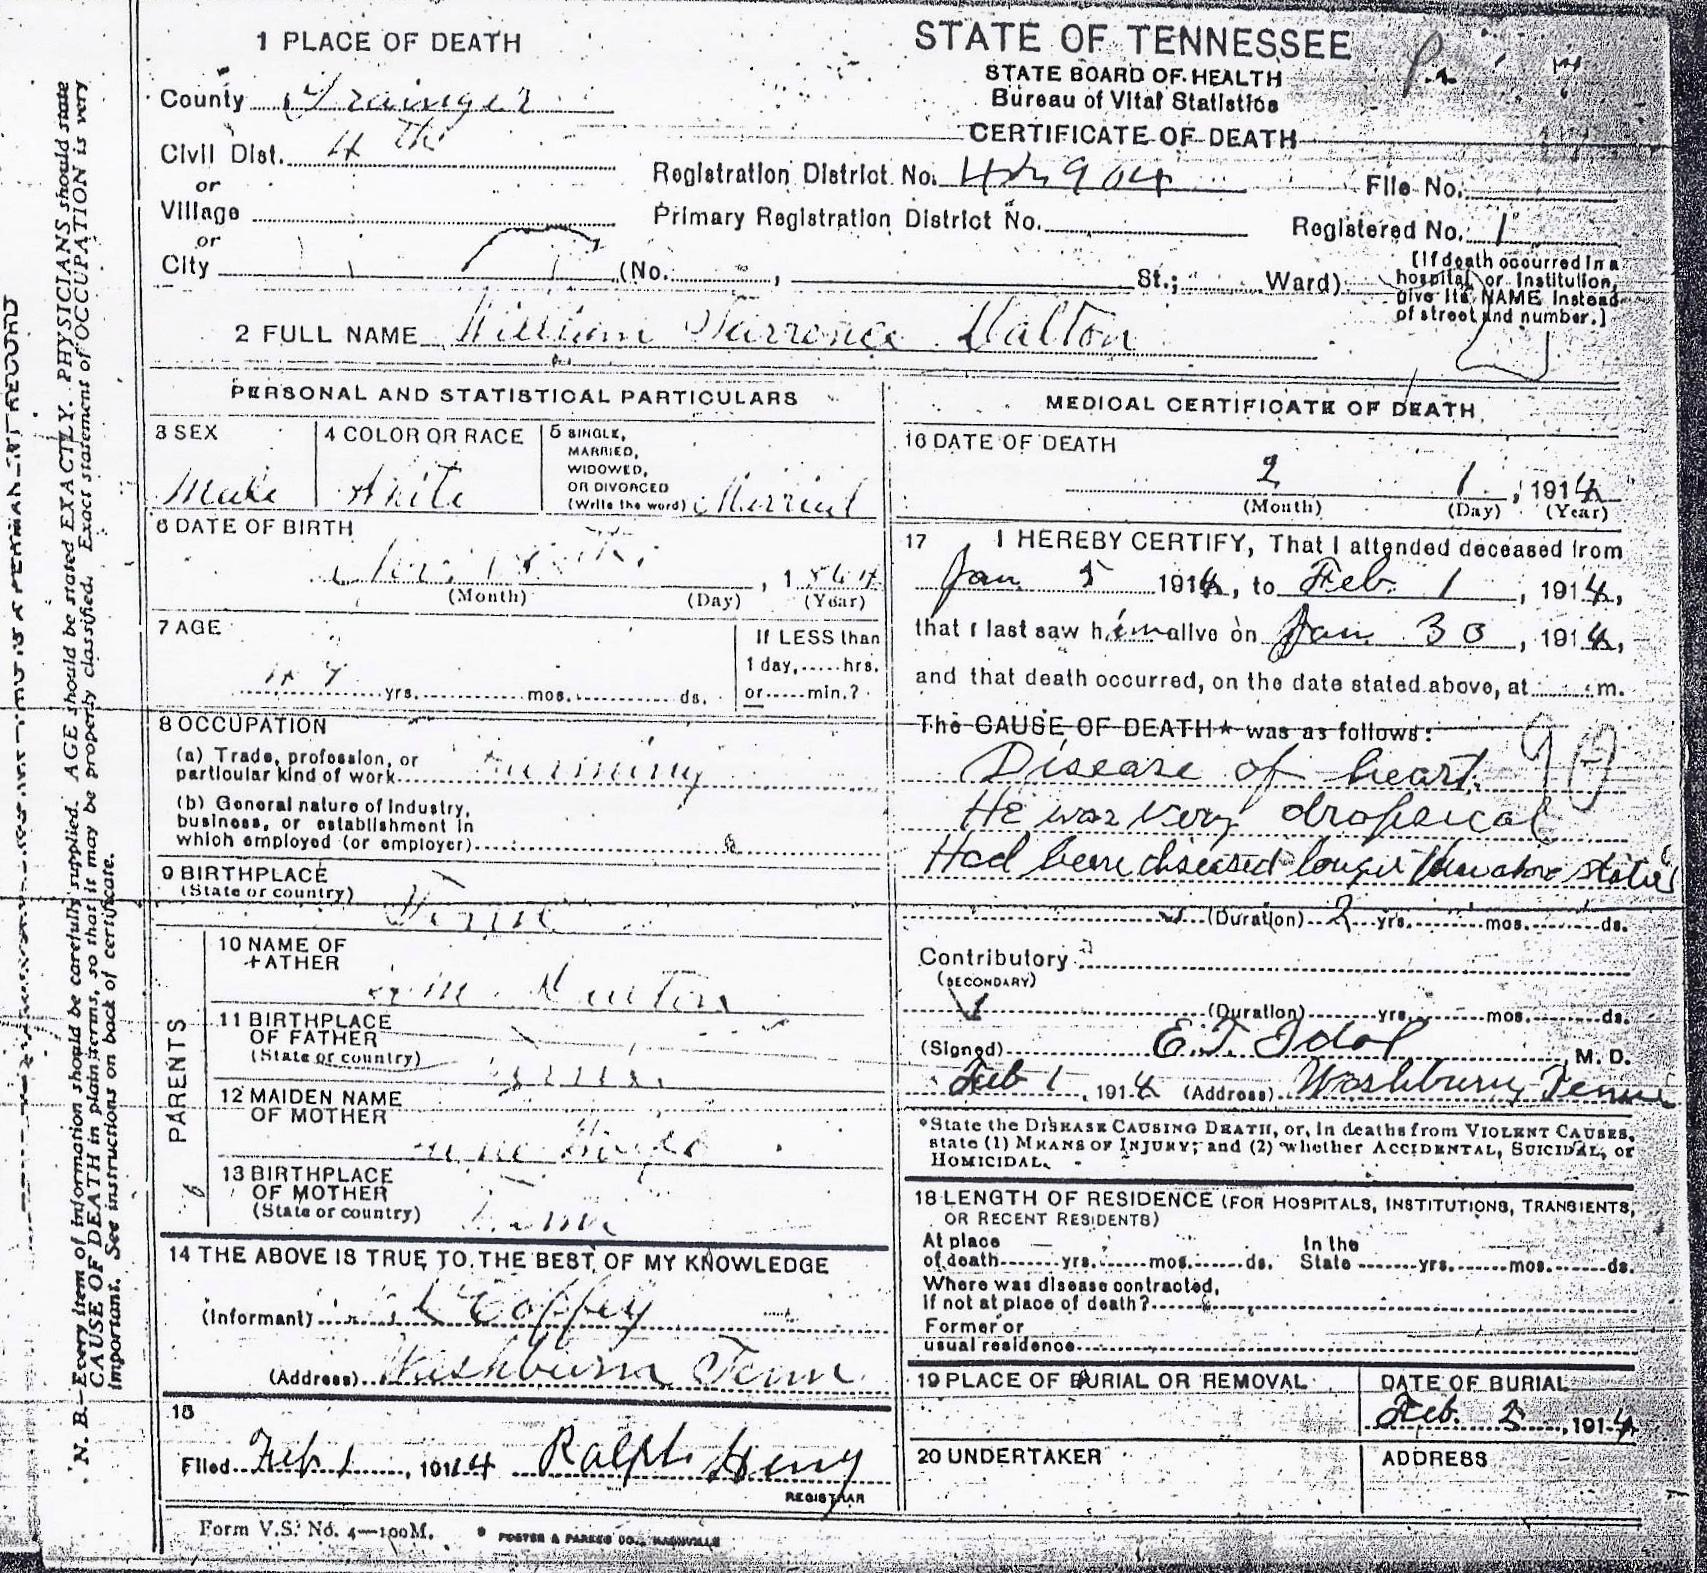 1 PLACE OF DEATH
County Grainger
Civil Dist. 4th
or
Village
or
City (No. , St.; Ward)
STATE OF TENNESSEE
STATE BOARD OF HEALTH
Bureau of Vital Statistics
CERTIFICATE OF DEATH
Registration District No. File No.
Primary Registration District No. Registered No. 1
[If death occurred in a
hospital or institution,
give its NAME instead
of street and number.]
2 FULL NAME William Dalton
PERSONAL AND STATISTICAL PARTICULARS
3 SEX
Male
4 COLOR OR RACE
White
5 SINGLE,
MARRIED,
WIDOWED,
OR DIVORCED
(Write the word) Married
6 DATE OF BIRTH
, 1
(Month) (Day) (Year)
7 AGE
yrs. mos. ds.
If LESS than
1 day, hrs.
or min.?
8 OCCUPATION
(a) Trade, profession, or
particular kind of work Farming
(b) General nature of industry,
business, or establishment in
which employed (or employer)
9 BIRTHPLACE
(State or country)
Tenn
PARENTS
10 NAME OF
FATHER
11 BIRTHPLACE
OF FATHER
(State or country)
Tenn
12 MAIDEN NAME
OF MOTHER
13 BIRTHPLACE
OF MOTHER
(State or country)
Tenn
14 THE ABOVE IS TRUE TO THE BEST OF MY KNOWLEDGE
(Informant) Coffey
(Address) Washburn Tenn
15
Filed Feb 1, 1914 Ralph Henry
REGISTRAR
MEDICAL CERTIFICATE OF DEATH
16 DATE OF DEATH
2 1, 1914
(Month) (Day) (Year)
17 I HEREBY CERTIFY, That I attended deceased from
Jan 5 1914, to Feb. 1, 1914,
that I last saw him alive on Jan 30, 1914,
and that death occurred, on the date stated above, at m.
The CAUSE OF DEATH* was as follows:
Disease of heart.
He was very dropsical
Had been diseased longer than above stated
(Duration) 2 yrs. mos. ds.
Contributory
(SECONDARY)
(Duration) yrs. mos. ds.
(Signed) E.T. Idol, M. D.
Feb 1, 1914 (Address) Washburn, Tenn
*State the DISEASE CAUSING DEATH, or, in deaths from VIOLENT CAUSES,
state (1) MEANS OF INJURY; and (2) whether ACCIDENTAL, SUICIDAL, or
HOMICIDAL.
18 LENGTH OF RESIDENCE (FOR HOSPITALS, INSTITUTIONS, TRANSIENTS,
OR RECENT RESIDENTS)
At place In the
of death yrs. mos. ds. State yrs. mos. ds.
Where was disease contracted,
if not at place of death?
Former or
usual residence
19 PLACE OF BURIAL OR REMOVAL
DATE OF BURIAL
Feb. 2, 1914
20 UNDERTAKER
ADDRESS
Form V.S. No. 4—100M.
FOSTER & PARKES CO., NASHVILLE
N. B.—Every item of information should be carefully supplied. AGE should be stated EXACTLY. PHYSICIANS should state
CAUSE OF DEATH in plain terms, so that it may be properly classified. Exact statement of OCCUPATION is very
important. See instructions on back of certificate.